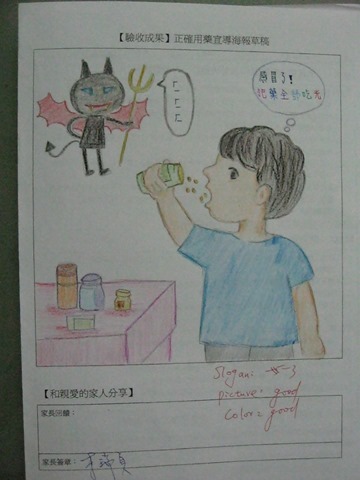 【驗收成果】正確用藥宣導海報草稿
感冒了！
把藥全部吃光
ㄏ
ㄏ
ㄏ
Slogan:
picture: good
color: good
【和親愛的家人分享】
家長回饋：
家長簽章：